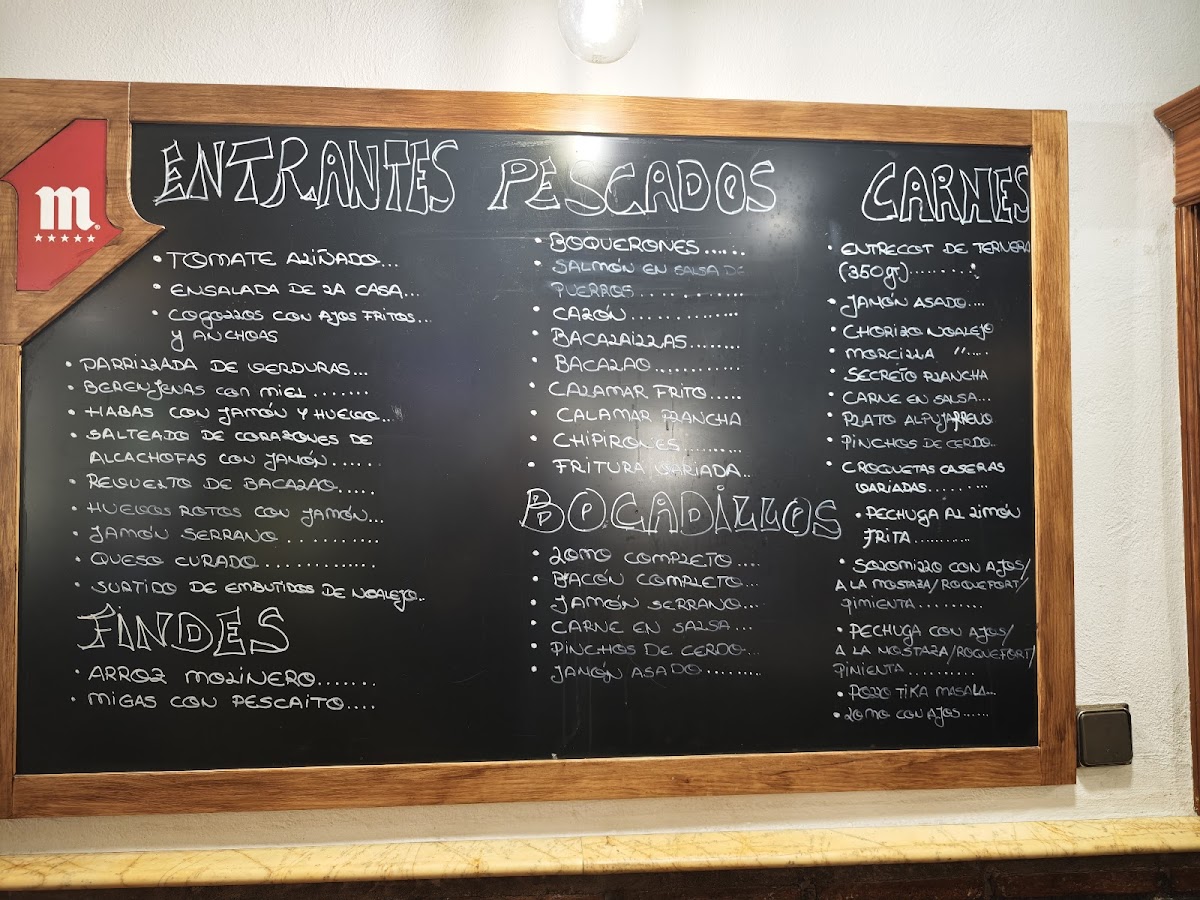 m
ENTRANTES
• TOMATE ALIÑADO...
• ENSALADA DE LA CASA...
• COGOLLOS CON AJOS FRITOS...
Y ANCHOAS
• PARRILLADA DE VERDURAS...
• BERENJENAS CON MIEL.......
• HABAS CON JAMÓN Y HUEVO...
• SALTEADO DE CORAZONES DE
ALCACHOFAS CON JAMÓN......
• REVUELTO DE BACALAO.....
• HUEVOS ROTOS CON JAMÓN...
• JAMÓN SERRANO ..........
• QUESO CURADO ............
• SURTIDO DE EMBUTIDOS DE NOALEJO..
FINDES
• ARROZ MOLINERO.......
• MIGAS CON PESCAITO....
PESCADOS
• BOQUERONES......
• SALMÓN EN SALSA DE
PUERROS............
• CAZÓN..............
• BACALAILLAS........
• BACALAO............
• CALAMAR FRITO.....
• CALAMAR PLANCHA
• CHIPIRONES........
• FRITURA VARIADA..
BOCADILLOS
• LOMO COMPLETO ....
• BACÓN COMPLETO...
• JAMÓN SERRANO....
• CARNE EN SALSA...
• PINCHOS DE CERDO...
• JAMÓN ASADO ........
CARNES
• ENTRECOT DE TERNERA
(350gr).........
• JAMÓN ASADO....
• CHORIZO NOALEJO
• MORCILLA "....
• SECRETO PLANCHA
• CARNE EN SALSA...
• PLATO ALPUJARREÑO
• PINCHOS DE CERDO..
• CROQUETAS CASERAS
VARIADAS.........
• PECHUGA AL LIMÓN
FRITA..........
• SOLOMILLO CON AJOS/
A LA MOSTAZA/ROQUEFORT/
PIMIENTA .........
• PECHUGA CON AJOS/
A LA MOSTAZA/ROQUEFORT/
PIMIENTA ..........
• POLLO TIKA MASALA...
• LOMO CON AJOS......